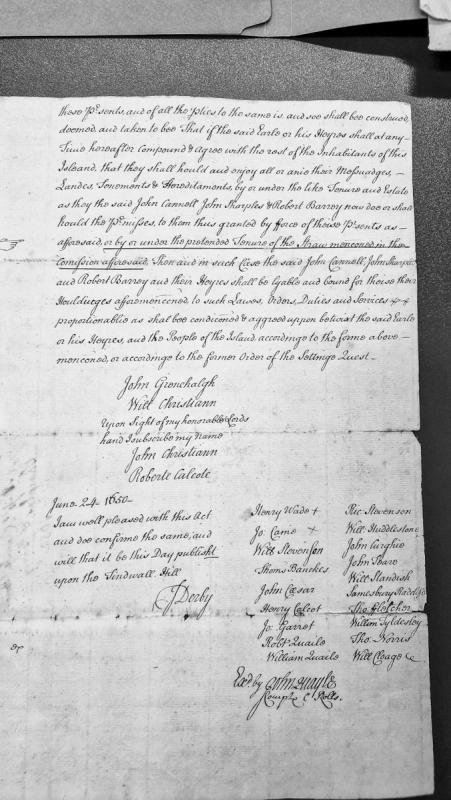 these Pr.sents, and of all the Pties to the same is and soe shall bee construed,
deemed, and taken to bee That if the said Earle or his Heyres shall at any
Time hereafter Compound & Agree with the rest of the Inhabitants of this
Island, that they shall hould and enjoy all or anie their Messuadges, –
Landes, Tenements & Hereditaments, by or under the like Tenure and Estate
as they the said John Cannell John Sharples & Robert Barroy now doe or shall
hould the Pr.misses, to them thus granted by force of theise Pr.sents as –
afforesaid, or by or under the pretended Tenure of the Straw menconed in the
Comission afforesaid, Then and in such Case the said John Cannell, John Sharples
and Robert Barroy and their Heyres shall be lyable and bound for theise their
Houldinges afforemenconed to such Lawes, Orders, Duties and Services
proportionablie as shal bee condiconed & aggreed uppon betwixt the said Earle
or his Heyres, and the People of the Island, accordinge to the forme above –
menconed, or accordinge to the former Order of the Settinge Quest –
John Grenehalgh
Will Christiann
Upon Sight of my honorable Lords
hand I subscribe my Name
John Christiann
Roberte Calcote
June 24 1650 –
I am well pleased with this Act
and doe confirme the same, and
will that it be this Day publisht
upon the Tindwall Hill
J Derby
Henry Wade +
Jo: Came +
Will Stevenson
Thoms Banckes
John Cæsar
Henry Calcot
Jo: Garret
Robt Quaile
William Quaile
Ric Stevenson
Will Huddlestone
John Curghie
John
Will Standish
Samesbury Radclif
Tho: Fletcher
Willm Tyldesley
Tho: Norris
Will Cleage
Exd. by John Quayle
Compt. C Rolls.